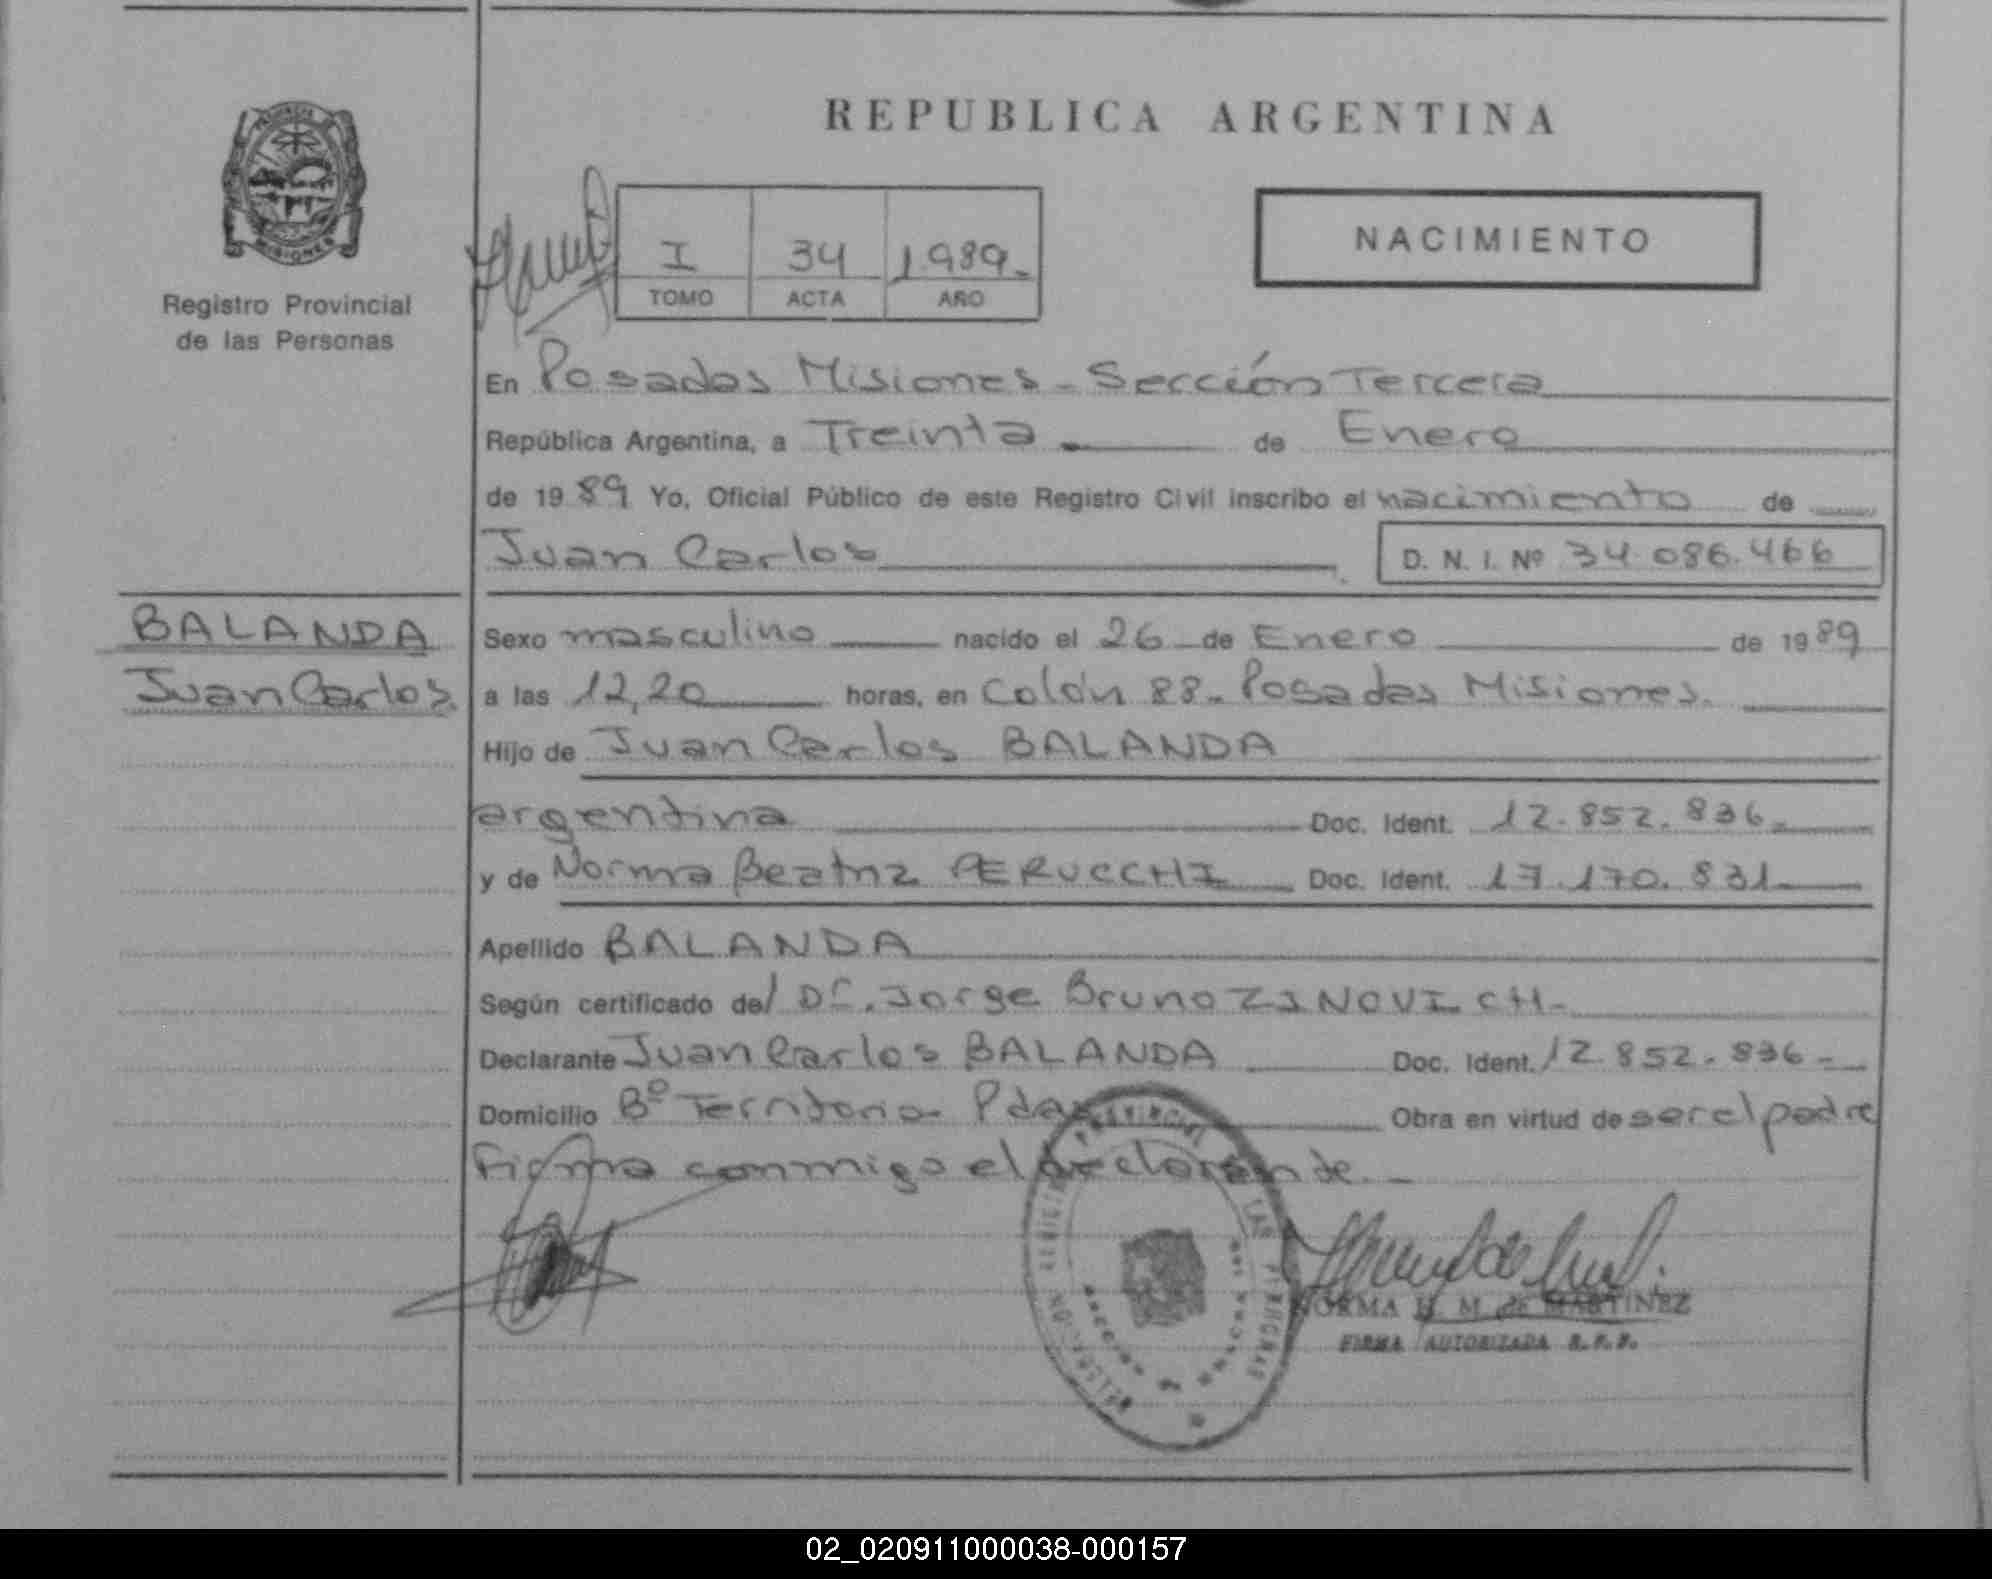 REPUBLICA ARGENTINA
PROVINCIA DE MISIONES
Registro Provincial
de las Personas
I 34 1.989.-
TOMO ACTA AÑO
NACIMIENTO
En Posadas Misiones - Sección Tercera
República Argentina, a Treinta - de Enero
de 1989 Yo, Oficial Público de este Registro Civil inscribo el nacimiento de
Juan Carlos D. N. I. Nº 34.086.466
BALANDA
Juan Carlos.
Sexo masculino nacido el 26 de Enero de 1989
a las 12,20 horas, en Colón 88- Posadas Misiones.
Hijo de Juan Carlos BALANDA
argentina Doc. Ident. 12.852.836.-
y de Norma Beatriz PERUCCHI Doc. Ident. 17.170.831
Apellido BALANDA
Según certificado del Dr. Jorge Bruno ZINOVICH-
Declarante Juan Carlos BALANDA Doc. Ident. 12.852.836-
Domicilio Bº Territorio Pdas Obra en virtud de ser el padre
Firma conmigo el declarante.-
NORMA H. M. de MARTINEZ
FIRMA AUTORIZADA R.P.P.
02_020911000038-000157